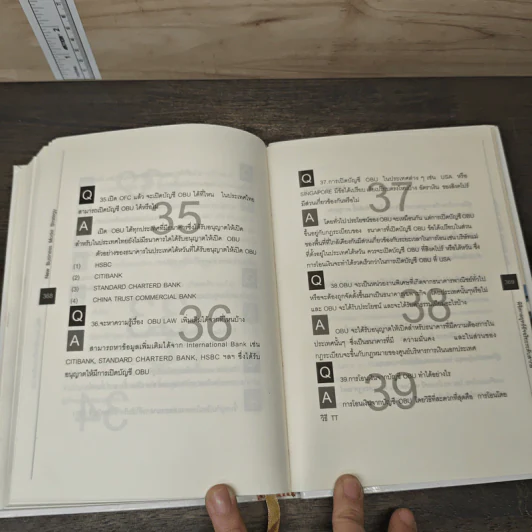 35
Q 35.เปิด OFC แล้ว จะเปิดบัญชี OBU ได้ที่ไหน ในประเทศไทย
สามารถเปิดบัญชี OBU ได้หรือไม่
A เปิด OBU ได้ทุกประเทศที่มีธนาคารซึ่งได้รับอนุญาตให้เปิด
สำหรับในประเทศไทยยังไม่มีธนาคารใดได้รับอนุญาตให้เปิด OBU
ตัวอย่างของธนาคารในประเทศไต้หวันที่ได้รับอนุญาตให้เปิด OBU
(1) HSBC
(2) CITIBANK
(3) STANDARD CHARTERD BANK
(4) CHINA TRUST COMMERCIAL BANK
36
Q 36.จะหาความรู้เรื่อง OBU LAW เพิ่มเติมได้จากที่ไหนบ้าง
A สามารถหาข้อมูลเพิ่มเติมได้จาก International Bank เช่น
CITIBANK, STANDARD CHARTERD BANK, HSBC ฯลฯ ซึ่งได้รับ
อนุญาตให้มีการเปิดบัญชี OBU
37
Q 37.การเปิดบัญชี OBU ในประเทศต่าง ๆ เช่น USA หรือ
SINGAPORE มีข้อได้เปรียบ
มีส่วนเกี่ยวข้องกันหรือไม่
A โดยทั่วไปประโยชน์ของ OBU จะเหมือนกัน แต่การเปิดบัญชี OBU
ขึ้นอยู่กับกฎระเบียบของ ธนาคารที่เปิดบัญชี OBU
การโอนเงินจะทำได้รวดเร็วกว่าในการเปิดบัญชี OBU ที่ USA
38
Q 38.OBU จะเป็นหน่วยงานพิเศษที่เกิดจากธนาคารพาณิชย์ทั่วไป
และ OBU จะได้รับประโยชน์
A OBU จะได้รับอนุญาตให้เปิดสำหรับธนาคารที่มีความต้องการใน
ประเทศนั้นๆ ซึ่งเป็นธนาคารที่มี ความมั่นคง
กฎระเบียบจะขึ้นกับกฎหมายของศูนย์บริหารการเงินนอกประเทศ
39
Q 39.การโอนเงินจากบัญชี OBU ทำได้อย่างไร
A การโอนเงินจากบัญชี OBU โดยวิธีที่สะดวกที่สุดคือ การโอนโดย
วิธี TT